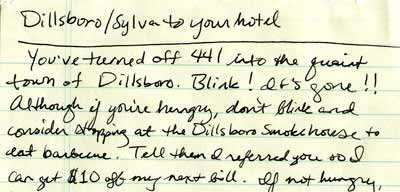 Dillsboro/Sylva to your hotel
You've turned off 441 into the quaint
town of Dillsboro. Blink! It's gone!!
Although if you're hungry, don't blink and
consider stopping at the Dillsboro Smokehouse to
eat barbecue. Tell them I referred you so I
can get $10 off my next bill. If not hungry,